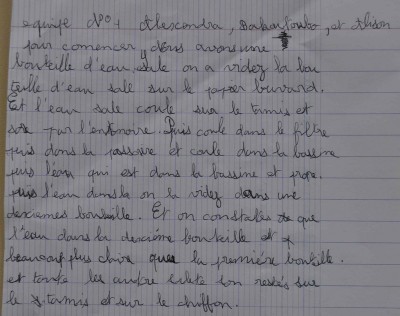 equipe N°1 Alexandra, et Alison
pour comencer, nous avons une
bouteille d'eau sale on a videz la bou
teille d'eau sale sur le papier buvard.
Et l'eau sale coule sur le tamis et
sore par l'entonoire. Puis coule dans le filtre
puis dans la passoire et coule dans la bassine
puis l'eau qui est dans la bassine et propre.
puis l'eau dans la on la videz dans une
deuxiemes bouteille. Et on constates que
l'eau dans la deuxième bouteille et
beaucoup plus claire que la première bouteille.
et toute les autre saleté son restés sur
le tamis et sur le chiffon.